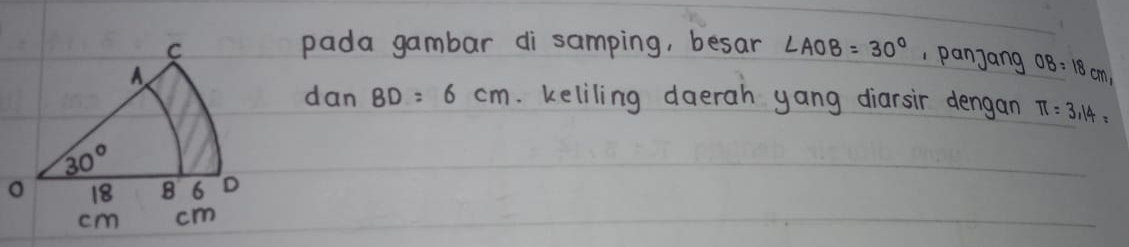 pada gambar di samping, besar ∠AOB = 30°, panjang OB = 18 cm,
dan BD = 6 cm. keliling daerah yang diarsir dengan π = 3,14 =
C
A
30°
O
B
D
18
cm
6
cm